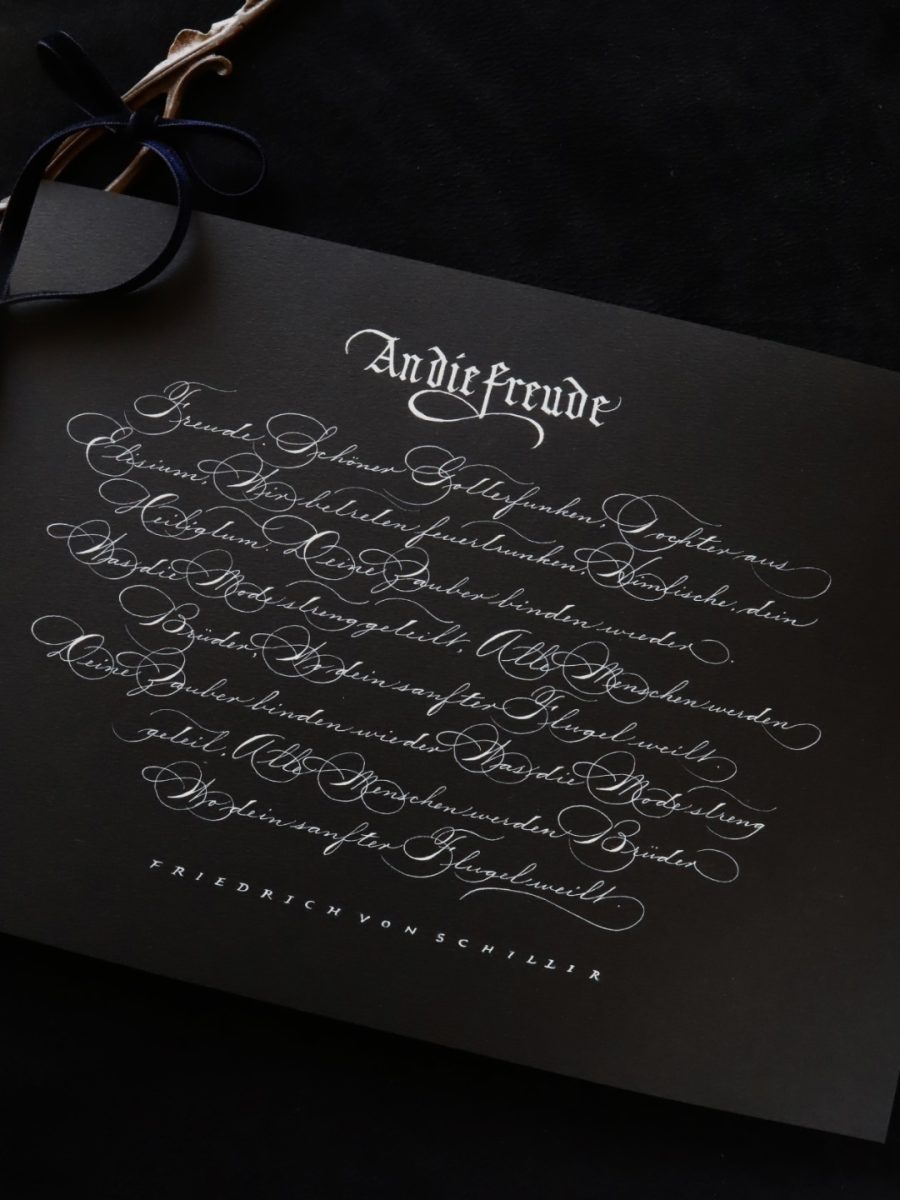 An die Freude
Freude, Schöner Gotterfunken, Tochter aus
Elisium, Wir betreten feuertrunken, Himlische, dein
Heiligtum. Deine Zauber binden wieder.
Was die Mode streng geteilt, Alle Menschen werden
Brüder, Wo dein sanfter Flugel weilt.
Deine Zauber binden wieder Was die Mode streng
geteil, Alle Menschen werden Brüder
Wo dein sanfter Flugel weilt.
FRIEDRICH VON SCHILLIR